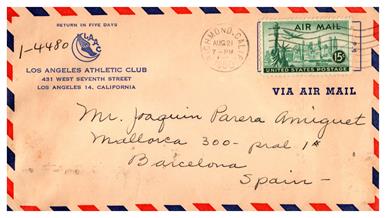 RETURN IN FIVE DAYS
1-4480
LAAC
LOS ANGELES ATHLETIC CLUB
431 WEST SEVENTH STREET
LOS ANGELES 14, CALIFORNIA
RICHMOND, CALIF.
AUG 21
7-PM
AIR MAIL
15¢
UNITED STATES POSTAGE
VIA AIR MAIL
Mr. Joaquin Parera Amiguet
Mallorca 300 - pral 1ª
Barcelona
Spain -